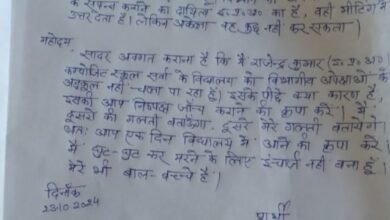 के सफल कराने का दायित्व इ०प्र०अ० का है, वही मीटिंग में
उत्तर देता है। लेकिन अकेला वह कुछ नहीं कर सकता।
महोदय,
सादर अवगत कराना है कि मैं राजेन्द्र कुमार (इ०प्र०अ०
कम्पोजिट स्कूल के विद्यालय को विभागीय अपेक्षाओं के
अनुकूल नहीं चला पा रहा हूँ। इसके पीछे क्या कारण है
इसकी आप निष्पक्ष जाँच कराने की कृपा करें। मैं
दूसरों की गलती बताऊंगा, दूसरे मेरे गलती बतायेंगे।
अतः आप एक दिन विद्यालय में आने की कृपा करें
मैं घुट-घुट कर मरने के लिए इंचार्ज नहीं बना हूँ।
मेरे भी बाल-बच्चे हैं।
दिनाँक
23.10.2024
प्रार्थी